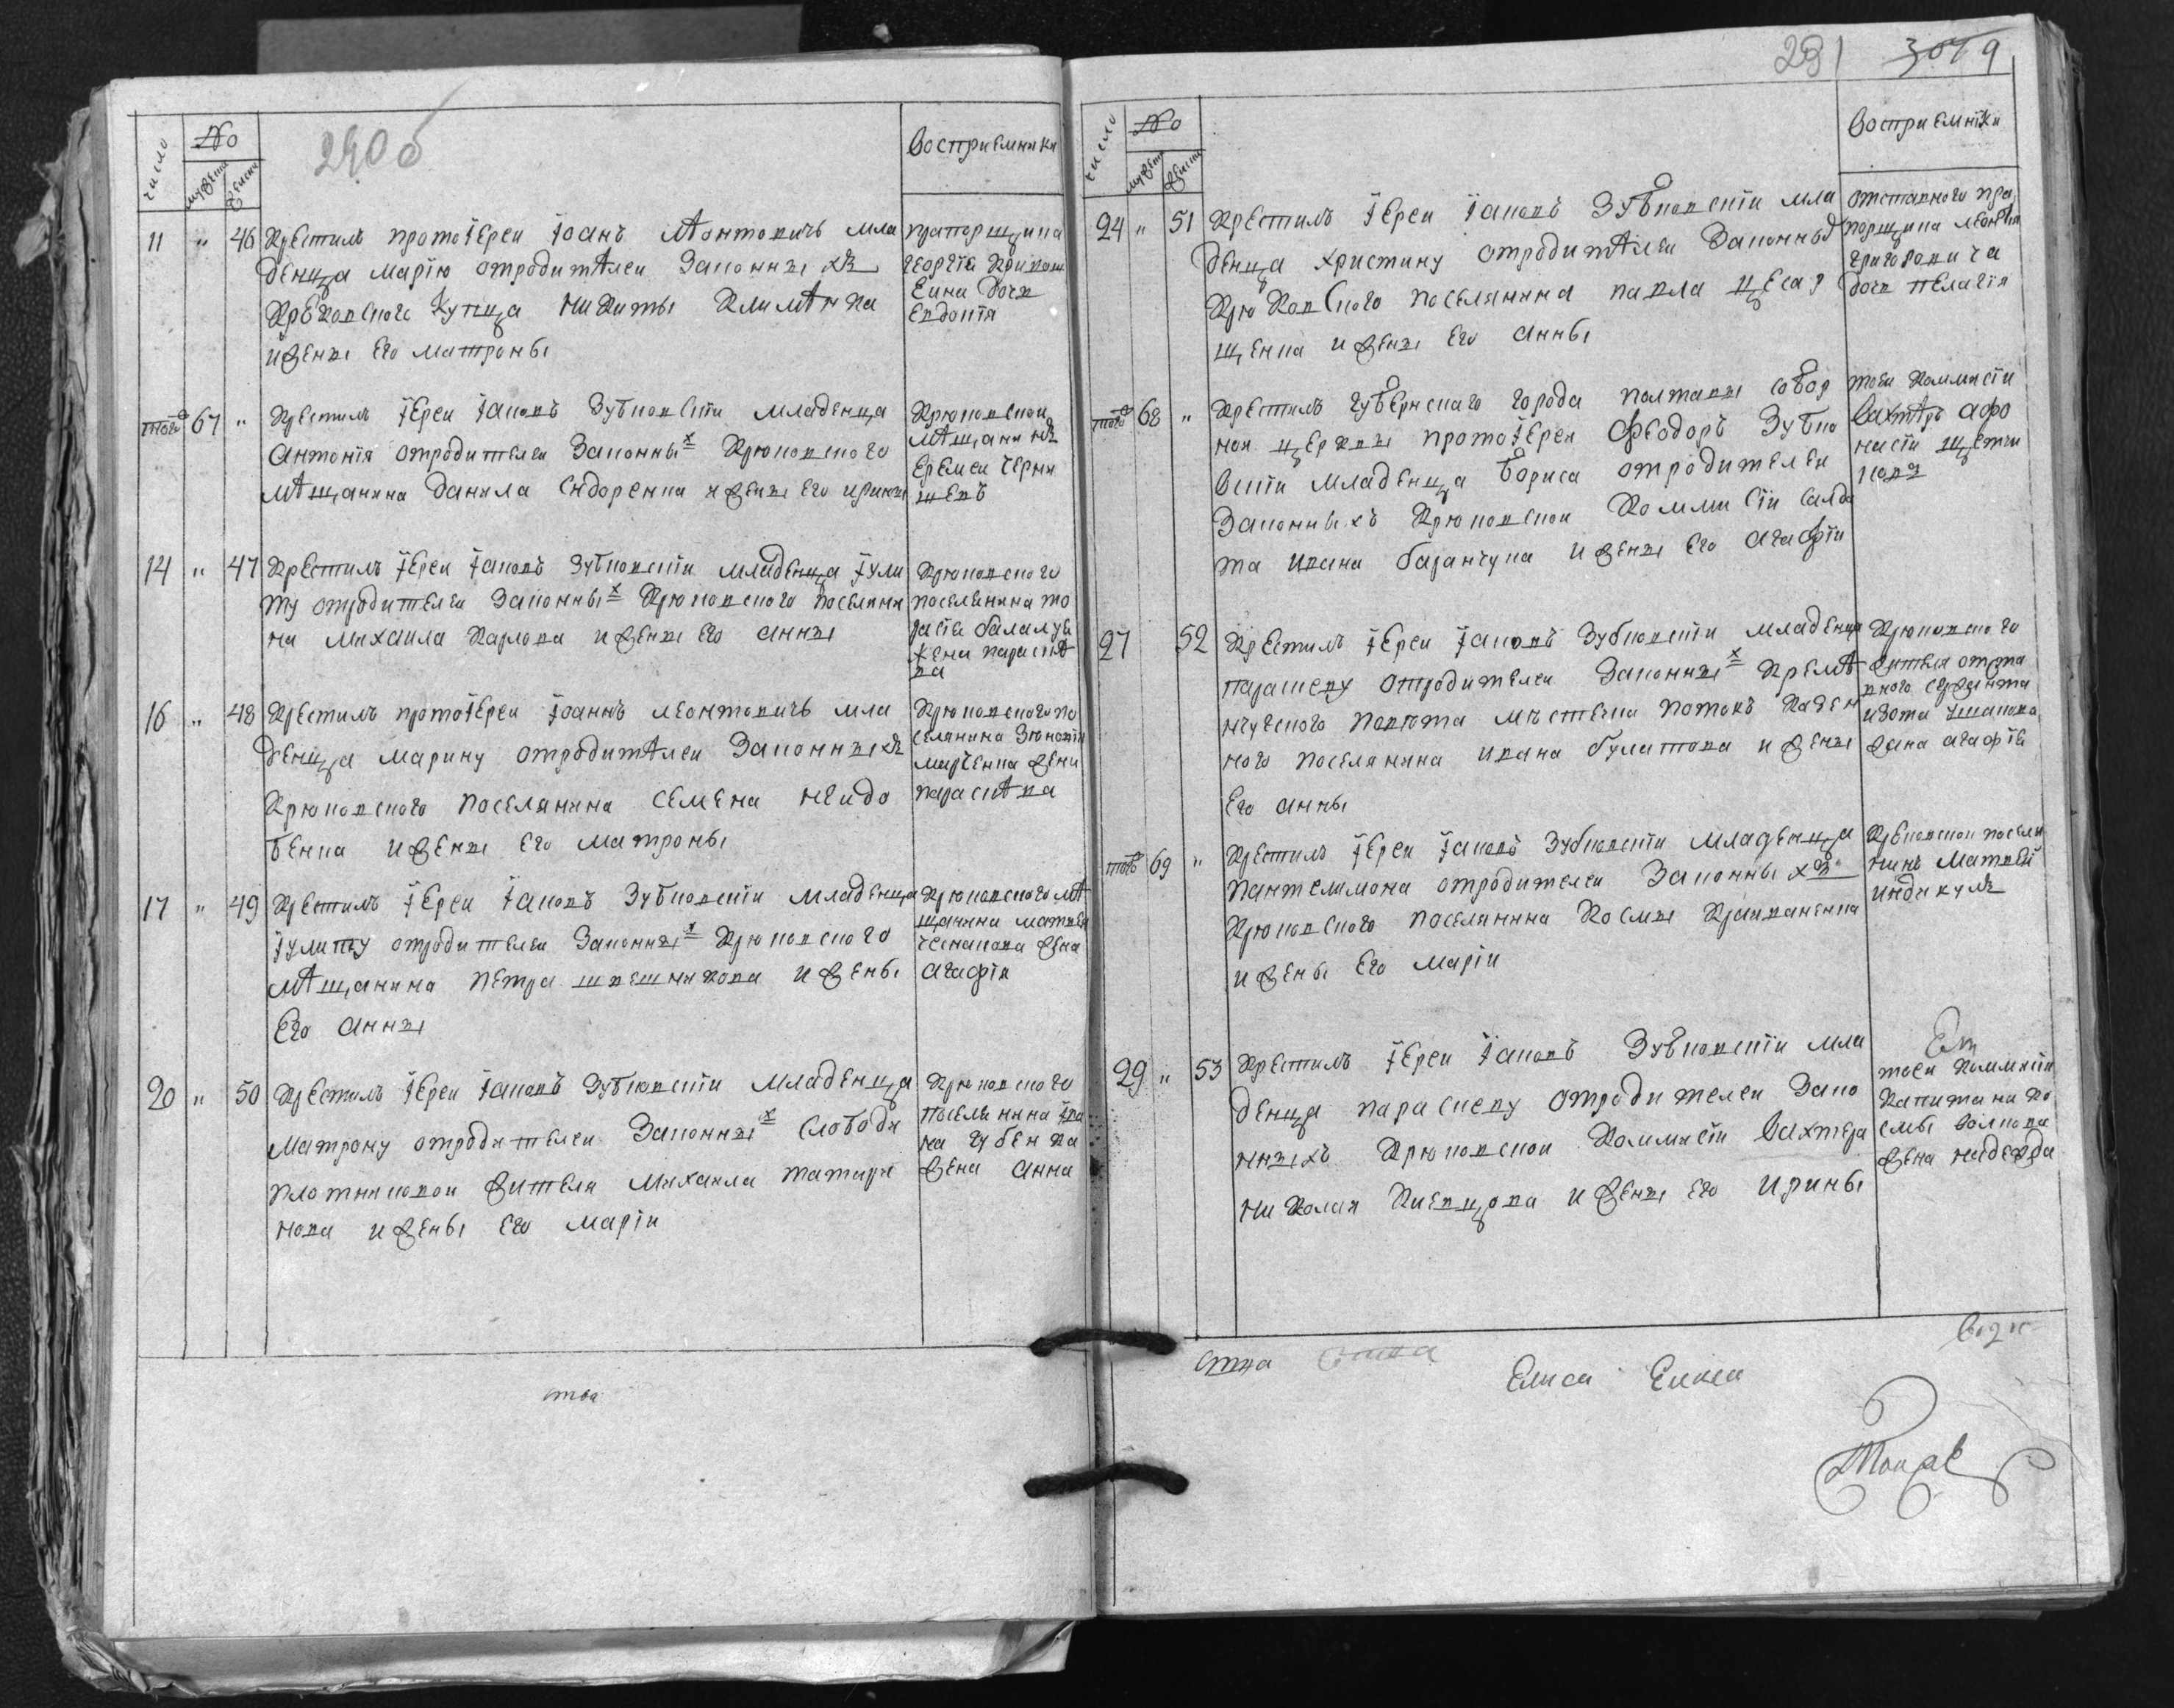 290б
число
No
мужеска
женска
Восприемники
11 " 46 Крестилъ протоіереи Іоанъ Леонтовичъ мла
денца Марію отродителеи Законныхъ
Крюковского Купца Никиты Клименка
ижены Его Матроны
прапорщика
Георгія
Дочь
Евдокія
того 67 " Крестилъ Іереи Іаковъ Зубковскіи Младенца
Антонія отродителеи Законных Крюковского
мѣщанина Данила Сидоренка ижены Его Ирины
Крюковскои
мѣщанинъ
Еремеи Черны
шевъ
14 " 47 Крестилъ Іереи Іаковъ Зубковскіи младенца Іули
ту отродителеи Законных Крюковского поселяни
на Михаила Карпова ижены Его Анны
Крюковского
поселянина То
расія
жена Параскѣ
ва
16 " 48 Крестилъ протоіереи Іоаннъ Леонтовичъ мла
денца Марину отродителеи Законныхъ
Крюковского поселянина Семена Неидо
бенка ижены Его Матроны
Крюковского по
селянина
Марченка жена
Параскѣва
17 " 49 Крестилъ Іереи Іаковъ Зубковскіи младенца
Іулиту отродителеи Законных Крюковского
мѣщанина Петра Швешникова ижены
Его Анны
Крюковского мѣ
щанина Матвея
жена
Агафія
20 " 50 Крестилъ Іереи Іаковъ Зубковскіи Младенца
Матрону отродителеи Законных Слободи
Плотниковои жителя Михаила Татари
нова ижены Его Маріи
Крюковского
поселянина Ива
на Губенка
жена Анна
ства
291 3079
число
No
мужеск
женска
Восприемники
24 " 51 Крестилъ Іереи Іаковъ Зубковскіи мла
денца Христину отродителеи Законных
Крюковского поселянина Павла Цесар
щенка ижены Его Анны
отставного пра
порщика Леонтія
Григоровича
дочь Пелагія
того 68 " Крестилъ губернскаго города Полтавы собор
нои церквы протоіереи Феодоръ Зубко
вскіи Младенца Бориса отродителеи
Законныхъ Крюковскои Коммисіи Салда
та Ивана Баранчука ижены Его Агафіи
тоеи Коммисіи
Вахтѣръ Афо
насіи Щетин
ковъ
27 52 Крестилъ Іереи Іаковъ Зубковскіи младенца
Параскеву отродителеи Законных Кремѣ
нчугского Повѣта мѣстечка Потокъ Казен
ного поселянина Ивана Булатова ижены
Его Анны
Крюковского
жителя отста
вного сержанта
Изота Ушакова
жена Агафія
того 69 " Крестилъ Іереи Іаковъ Зубковскіи Младенца
Пантелимона отродителеи Законныхъ
Крюковского поселянина Космы Кравчаненка
ижены Его Маріи
Крюковскои поселя
нинъ Матвеи
Индикулъ
29 " 53 Крестилъ Іереи Іаковъ Зубковскіи мла
денца Параскеву отродителеи Зако
нныхъ Крюковскои Коммисіи Вахтера
Николая Киевцова ижены Его Ирины
тоеи Коммисіи
Капитана Ко
смы Волкова
жена Надежда